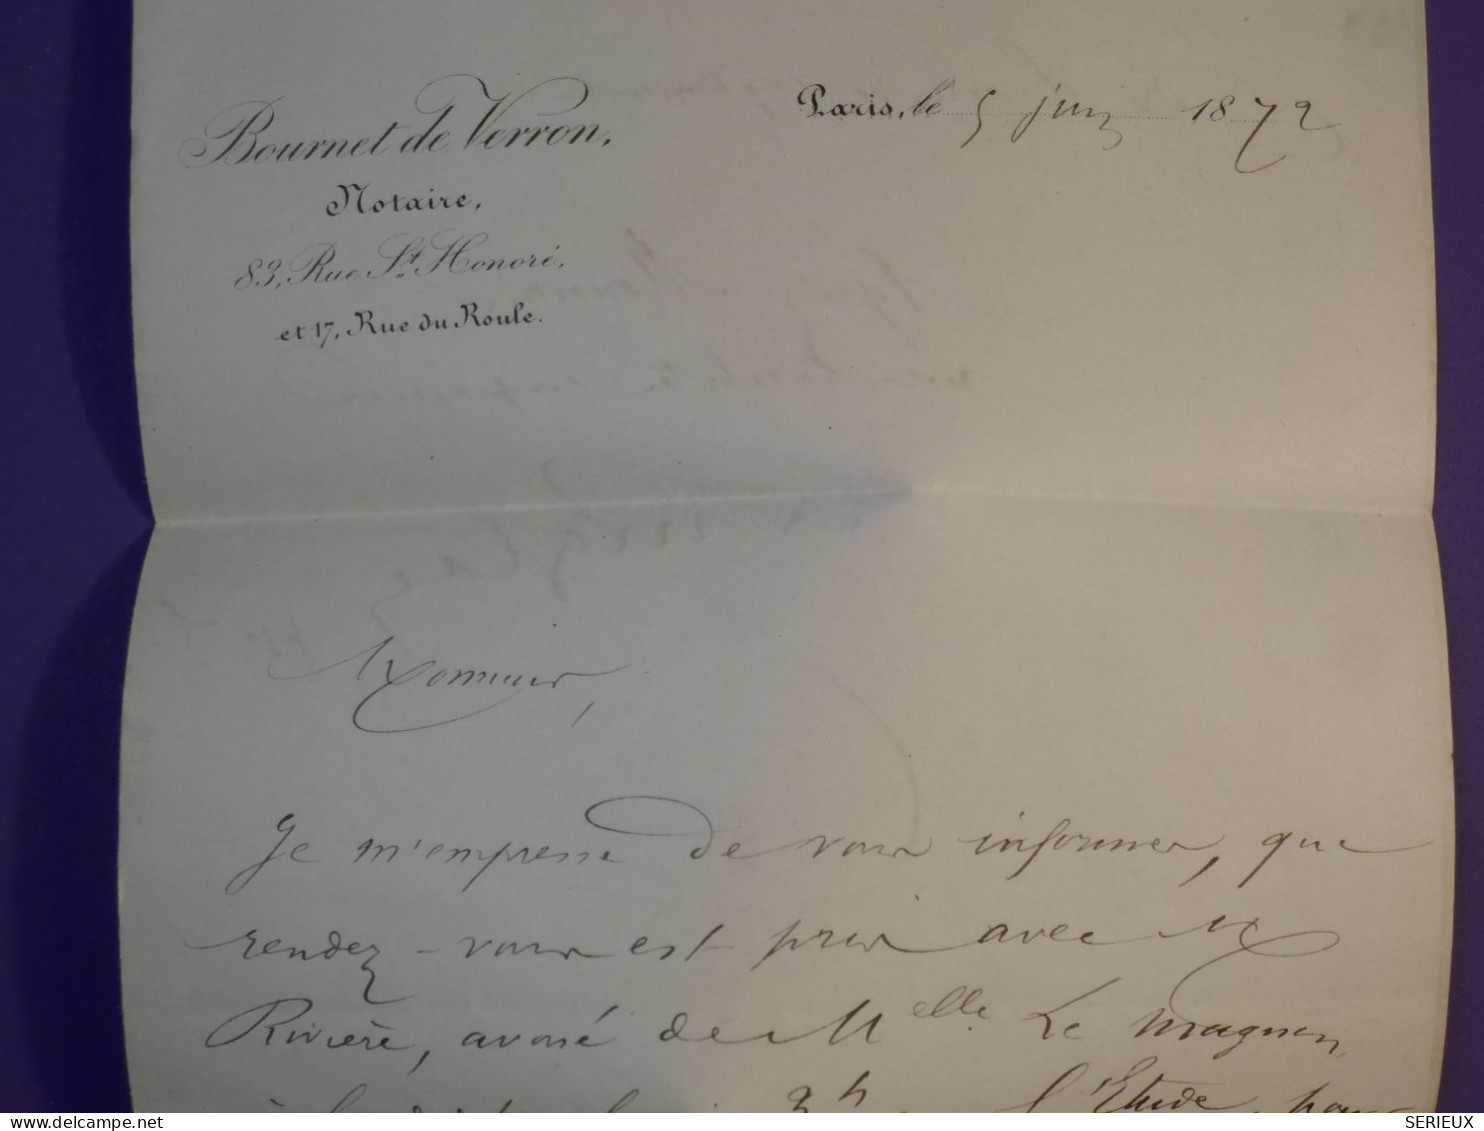 Bournet de Verron,
Notaire,
83, Rue St. Honoré,
et 17, Rue du Roule.
Paris, le 5 juin 1872
Monsieur,
Je m'empresse de vous informer, que
rendez-vous est pris avec M
Rivière, avoué de Melle Le Magnen,
3h l'Etude, pour
delcampe.net
SERIEUX